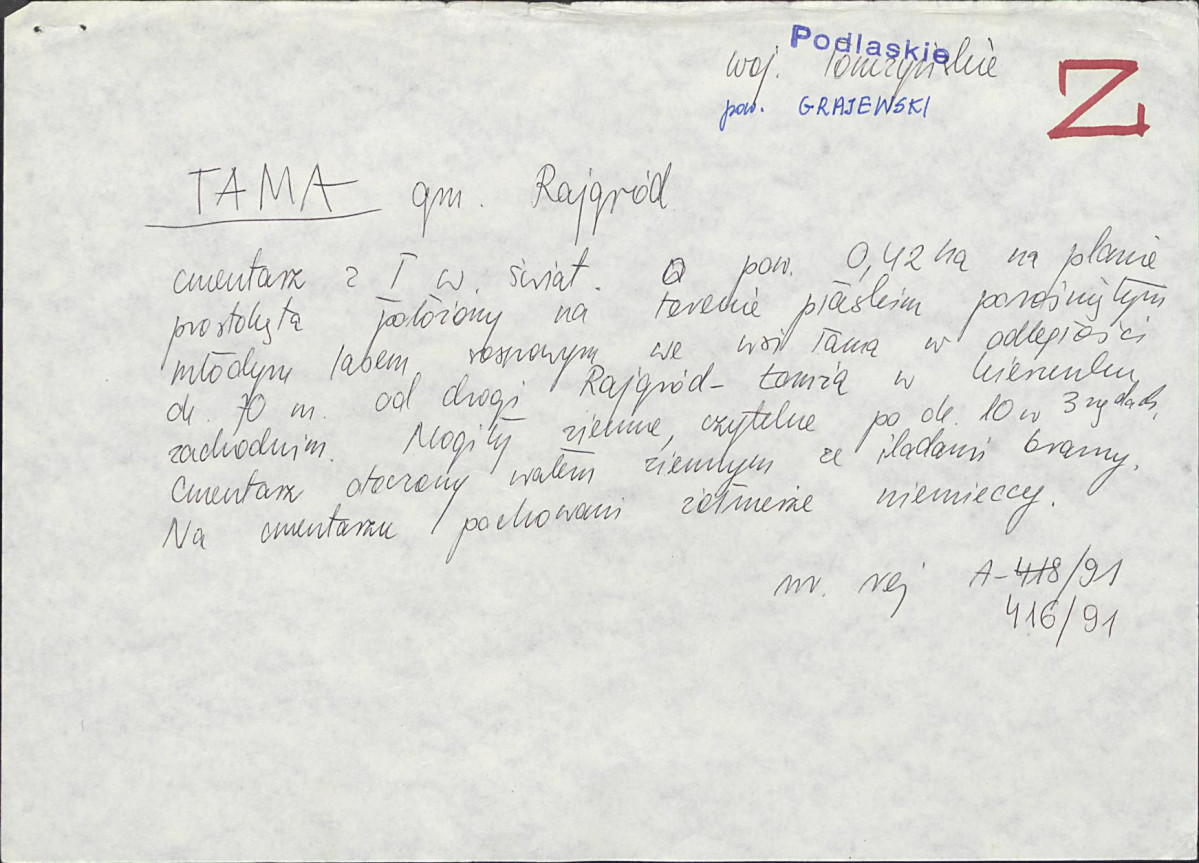 Podlaskie
woj. Łomżyńskie
pow. GRAJEWSKI
Z
TAMA gm. Rajgród
cmentarz z I w. świat. O pow. 0,42 ha na planie
prostokąta położony na terenie płaskim porośniętym
młodym lasem sosnowym we wsi Tama w odległości
ok. 70 m. od drogi Rajgród - Łomża w kierunku
zachodnim. Mogiły ziemne, czytelne po ok. 10 w 3 rzędach.
Cmentarz otoczony wałem ziemnym ze śladami bramy.
Na cmentarzu pochowani żołnierze niemieccy.
nr. rej A-418/91
416/91